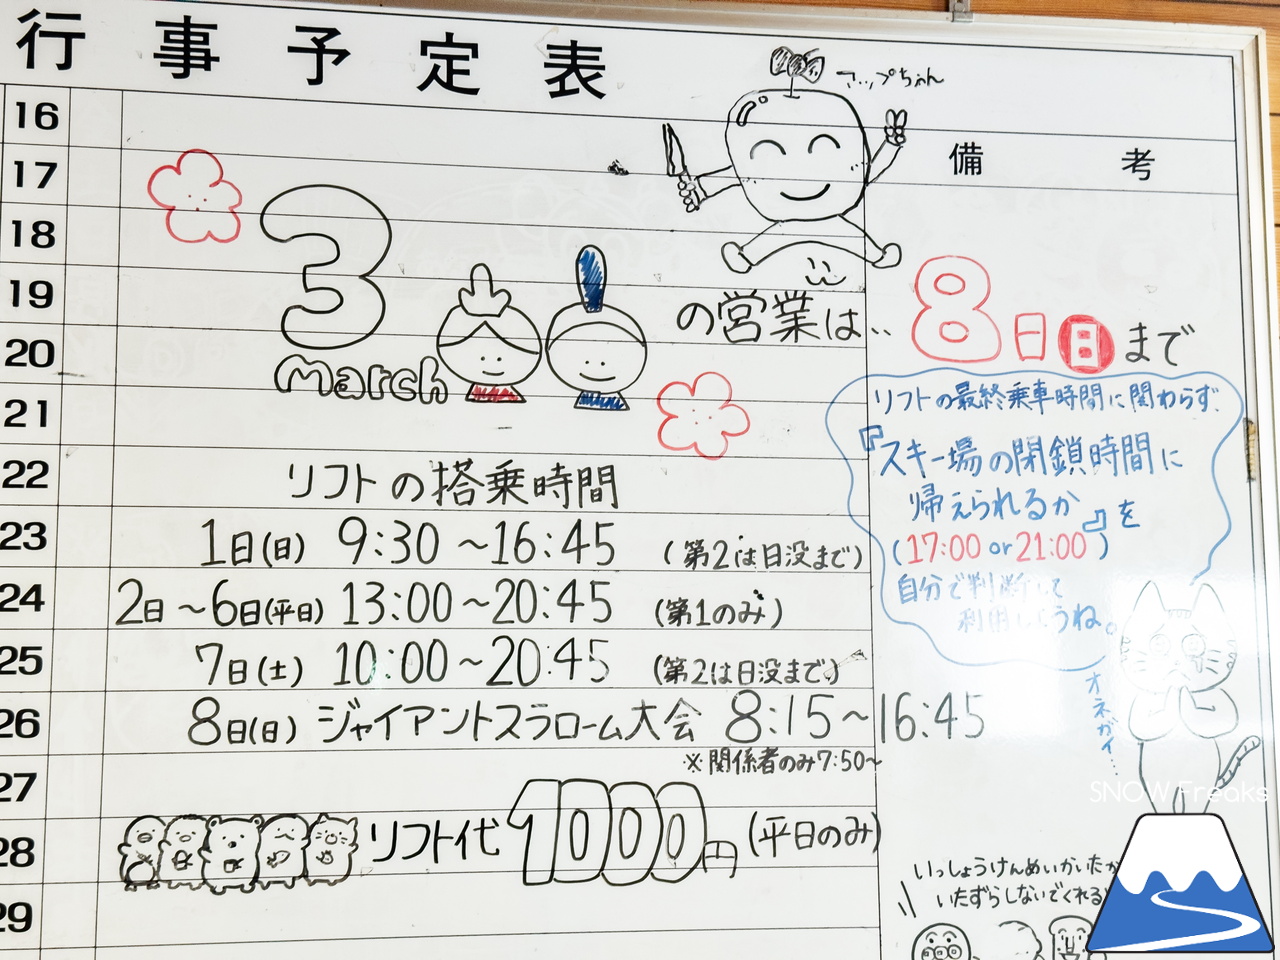 行事予定表
アップちゃん
備考
16
17
18
19
20
21
22
23
24
25
26
27
28
29
3
march
の営業は‥
8日日まで
リフトの最終乗車時間に関わらず、
『スキー場の閉鎖時間に
帰えられるか』を
(17:00 or 21:00)
自分で判断して
利用しようね。
オネガイ…
リフトの搭乗時間
1日(日) 9:30 ~16:45 (第2は日没まで)
2日~6日(平日) 13:00~20:45 (第1のみ)
7日(土) 10:00~20:45 (第2は日没まで)
8日(日) ジャイアントスラローム大会 8:15~16:45
※関係者のみ7:50~
リフト代 1000円 (平日のみ)
いっしょうけんめいかいたか
いたずらしないでくれる
SNOW Freaks